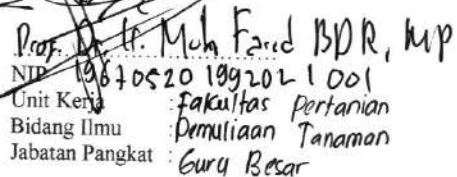 Prof. Dr. Ir. Muh Farid BDR, MP
NIP 19670520 199202 1 001
Unit Kerja : Fakultas Pertanian
Bidang Ilmu : Pemuliaan Tanaman
Jabatan Pangkat : Guru Besar